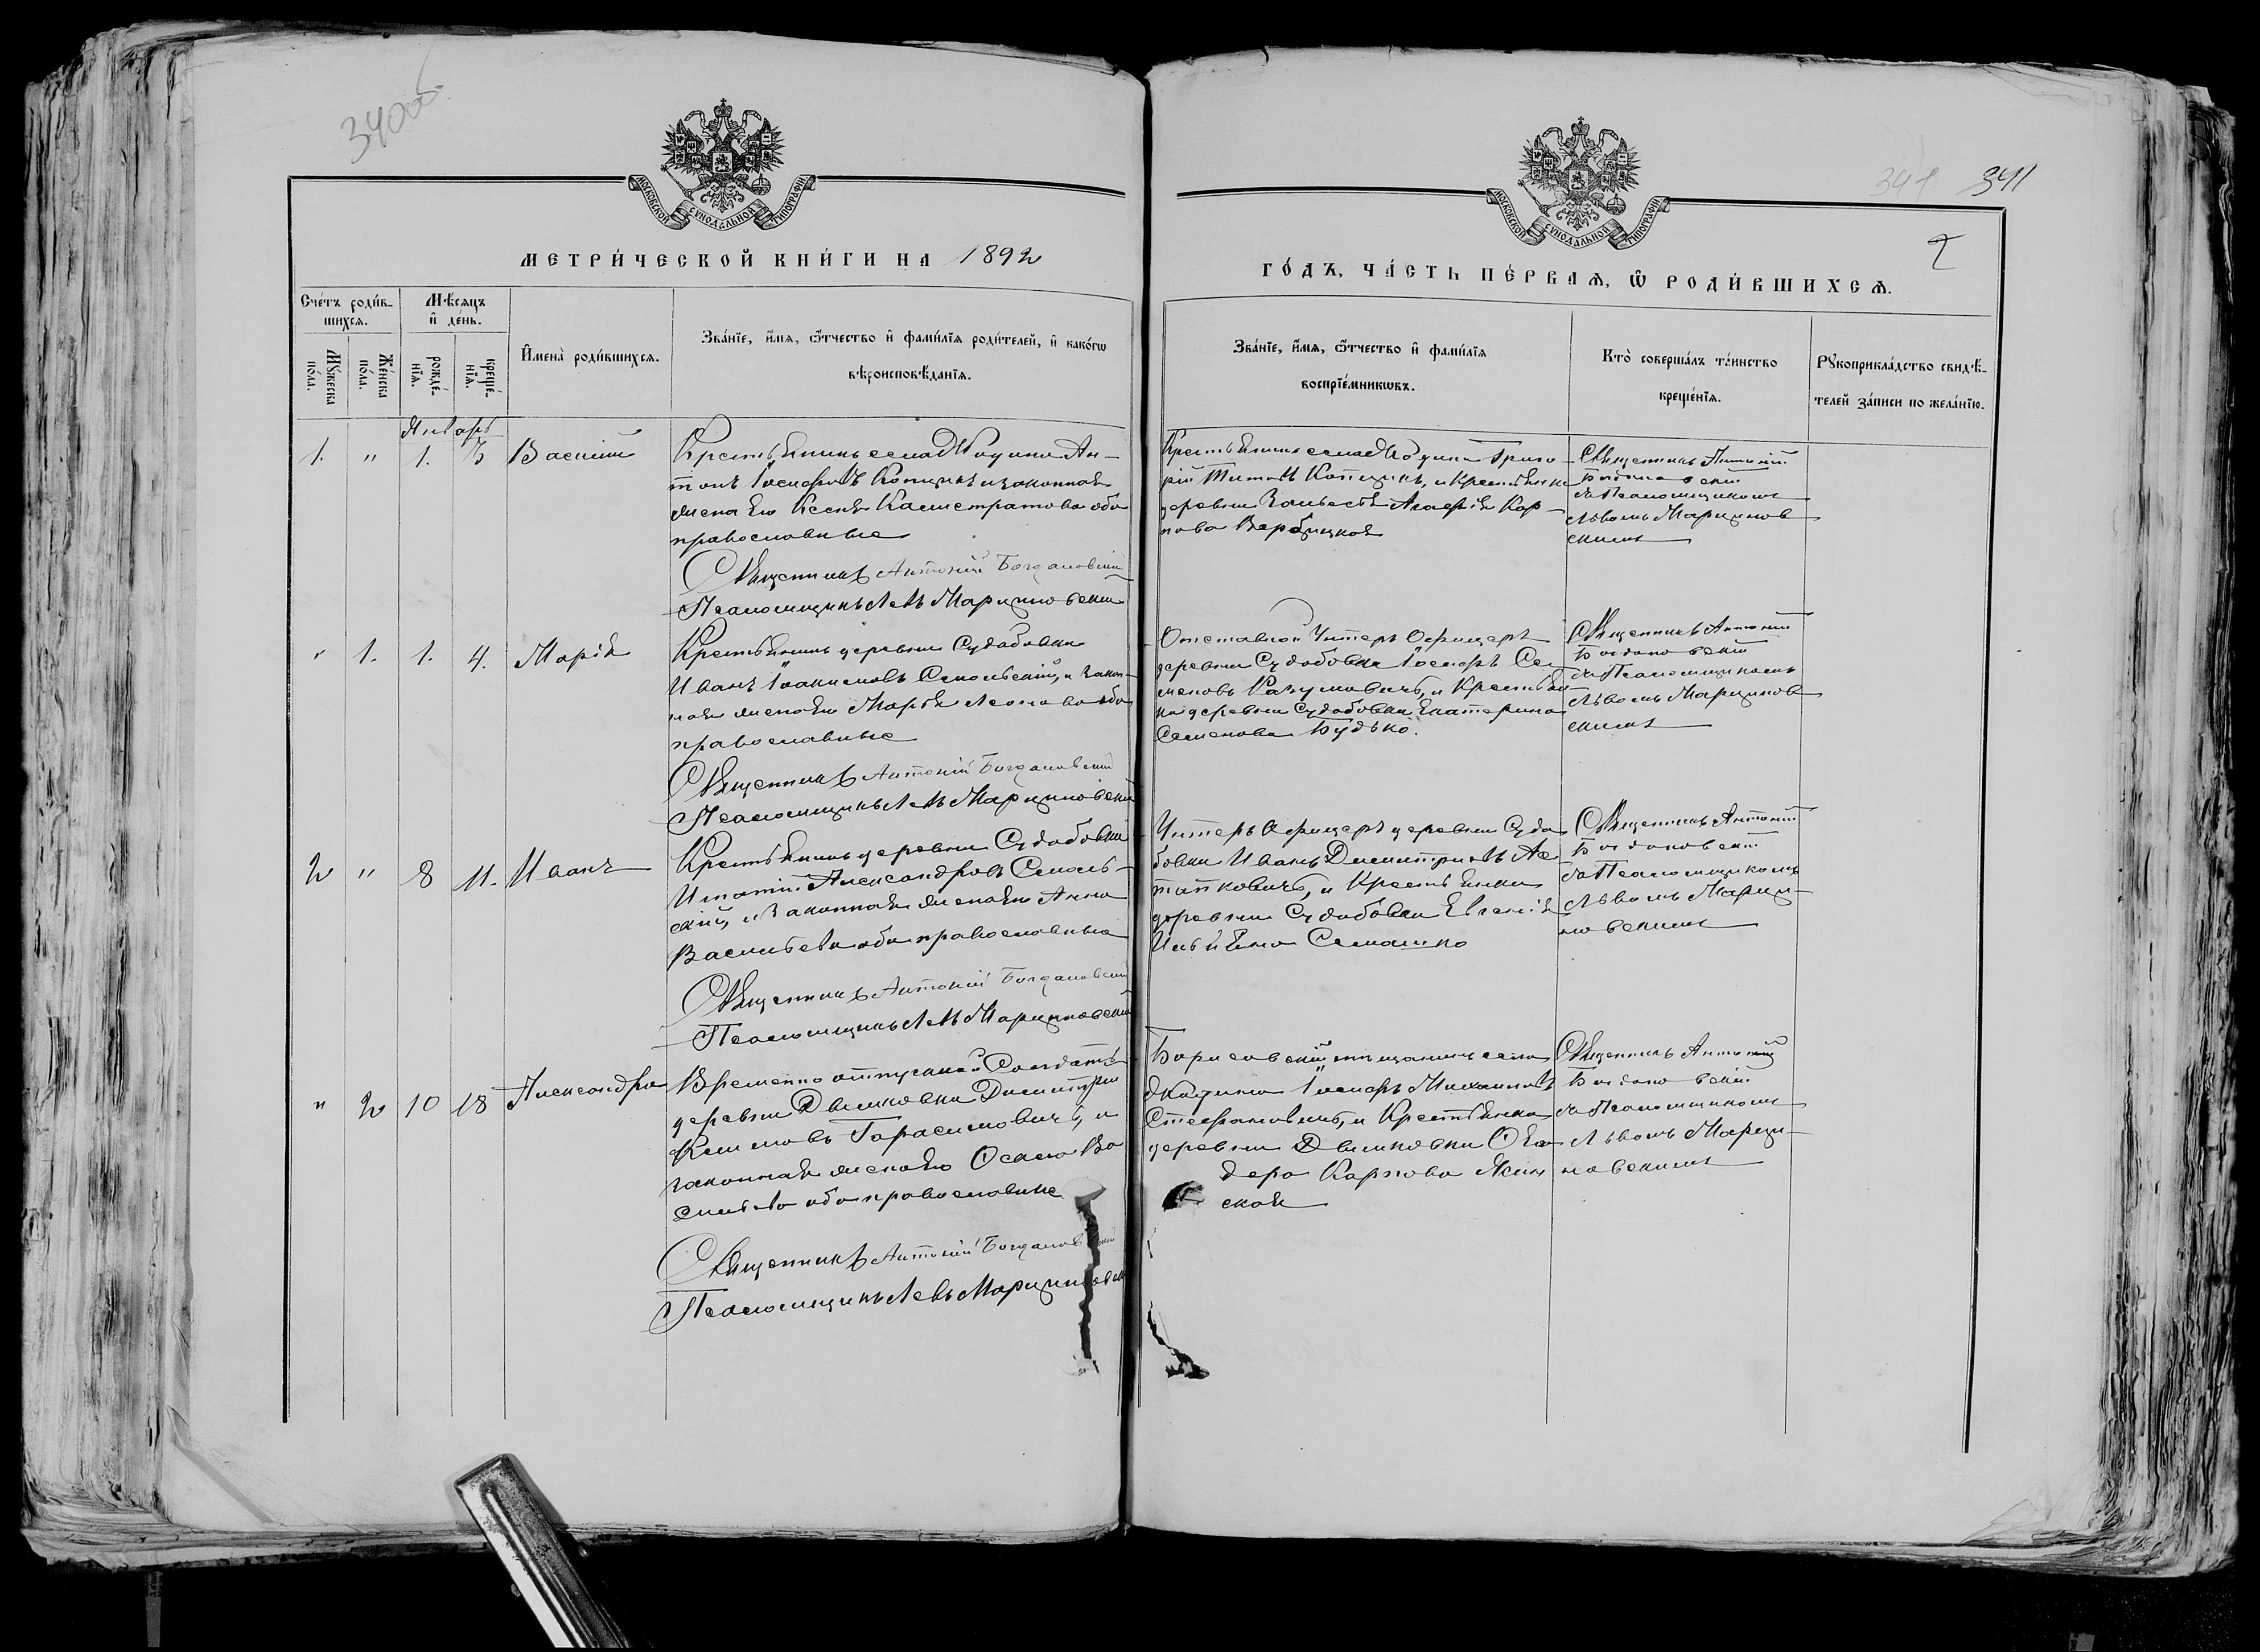 340об.
МОСКОВСКОЙ СѴНОДАЛЬНОЙ ТИПОГРАФІИ
МЕТРИ́ЧЕСКОЙ КНИ́ГИ НА 1892
Сче́тъ роди́в-
шихсѧ.
Мѣ́сѧцъ
и҆ де́нь.
Мꙋ́жеска
по́ла.
Же́нска
по́ла.
рожде́-
нїѧ.
креще́-
нїѧ.
И҆мена̀ роди́вшихсѧ.
Зва́нїе, и҆́мѧ, ѻ҆́тчество и҆ фами́лїѧ роди́телей, и҆ како́гѡ
вѣроисповѣ́данїѧ.
Январь
1. " 1. 3 Василій
Крестьянинъ села Жодина Ан-
тонъ Іосифовъ Копицкъ и законная
жена его Ксенія Калистратова оба
православные
Священникъ Антоній Богдановскій
Псаломщикъ Левъ Марциновскій
" 1. 1. 4. Марія
Крестьянинъ деревни Судобовки
Иванъ Іоакимовъ Смольскій, и закон-
ная жена его Марья Леонова оба
православные
Священникъ Антоній Богдановскій
Псаломщикъ Левъ Марциновскій
2 " 8 11. Иванъ
Крестьянинъ деревни Судобовки
Игнатій Александровъ Смоль-
скій, и законная жена его Анна
Васильева оба православные
Священникъ Антоній Богдановскій
Псаломщикъ Левъ Марциновскій
" 2 10 18 Александра
Временно отпускной Солдатъ
деревни Дымковки Димитрій
Климовъ Гарасимовичъ, и
законная жена его Ва
сильева оба православные
Священникъ Антоній Богдановскій
Псаломщикъ Левъ Марциновскій
341 341
2
МОСКОВСКОЙ СѴНОДАЛЬНОЙ ТИПОГРАФІИ
ГО́ДЪ, ЧА́СТЬ ПЕ́РВАѦ, Ѽ РОДИ́ВШИХСѦ.
Зва́нїе, и҆́мѧ, ѻ҆́тчество и҆ фами́лїѧ
воспрїе́мникѡвъ.
Кто̀ соверша́лъ та́инство
креще́нїѧ.
Рꙋкоприкла́дство свидѣ́-
телей за́писи по жела́нїю.
Крестьянинъ села Жодина Григо-
рій Титовъ Копицкъ, и Крестьянка
деревни Агафія Кар-
пова Вербицкая
Священникъ Антоній
Богдановскій
съ Псаломщикомъ
Львомъ Марцинов
скимъ
Отставной Унтеръ Офицеръ
деревни Судобовки Іосифъ Се-
меновъ Разумовичъ, и Крестьян-
ка деревни Судобовки Екатерина
Семенова Будько.
Священникъ Антоній
Богдановскій
съ Псаломщикомъ
Львомъ Марцинов
скимъ
Унтеръ Офицеръ деревни Судо
бовки Иванъ Димитріевъ Ас
тапковичъ, и Крестьянка
деревни Судобовки Евгенія
Ильина Семашко
Священникъ Антоній
Богдановскій
съ Псаломщикомъ
Львомъ Марци-
новскимъ
Борисовскій мѣщанинъ села
Жодина Іосифъ Михайловъ
Стефановичъ, и Крестьянка
деревни Дымковки Ѳео
дора Карпова
ская
Священникъ Антоній
Богдановскій
съ Псаломщикомъ
Львомъ Марци-
новскимъ